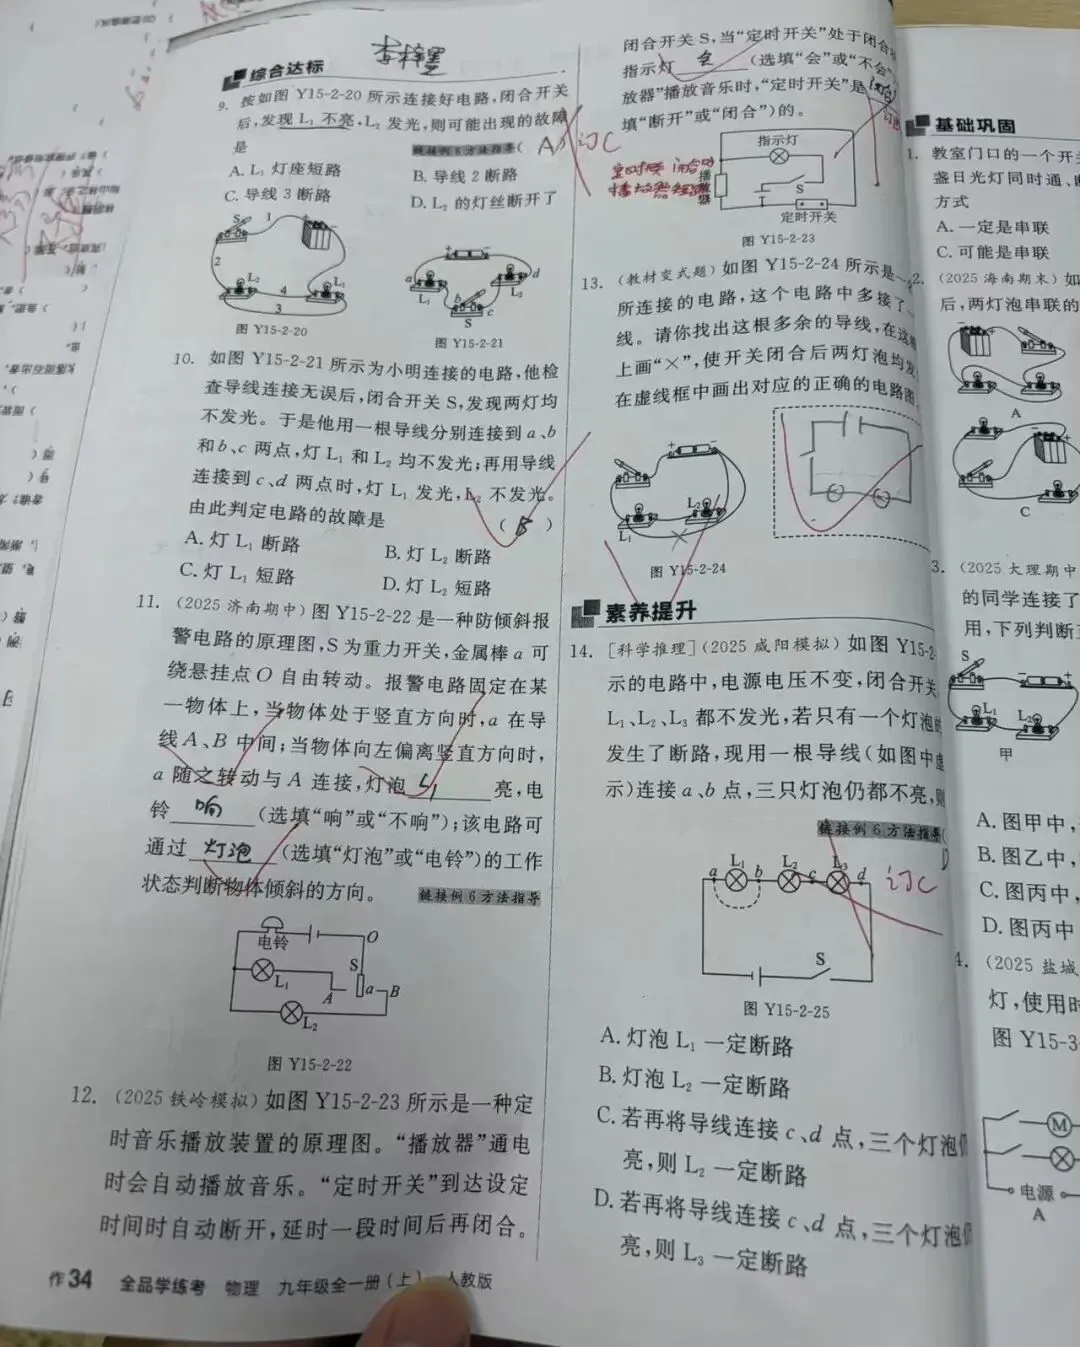 综合达标
9. 按如图 Y15-2-20 所示连接好电路,闭合开关
后,发现 L₁ 不亮,L₂ 发光,则可能出现的故障
是
链接例 6 方法指导( A )
订C
A. L₁ 灯座短路
B. 导线 2 断路
C. 导线 3 断路
D. L₂ 的灯丝断开了
S
1
2
L₂
4
L₁
3
图 Y15-2-20
+
-
a
d
L₁
b
L₂
c
S
图 Y15-2-21
10. 如图 Y15-2-21 所示为小明连接的电路,他检
查导线连接无误后,闭合开关 S,发现两灯均
不发光。于是他用一根导线分别连接到 a、b
和b、c 两点,灯 L₁ 和 L₂ 均不发光;再用导线
连接到 c、d 两点时,灯 L₁ 发光,L₂ 不发光。
由此判定电路的故障是
( B )
A. 灯 L₁ 断路
B. 灯 L₂ 断路
C. 灯 L₁ 短路
D. 灯 L₂ 短路
11. (2025 济南期中)图 Y15-2-22 是一种防倾斜报
警电路的原理图,S 为重力开关,金属棒 a 可
绕悬挂点 O 自由转动。报警电路固定在某
一物体上,当物体处于竖直方向时,a 在导
线 A、B 中间;当物体向左偏离竖直方向时,
a 随之转动与 A 连接,灯泡 L₁ 亮,电
铃 响 (选填“响”或“不响”);该电路可
通过 灯泡 (选填“灯泡”或“电铃”)的工作
状态判断物体倾斜的方向。
链接例 6 方法指导
电铃
O
S
L₁
A
a
B
L₂
图 Y15-2-22
12. (2025 铁岭模拟)如图 Y15-2-23 所示是一种定
时音乐播放装置的原理图。“播放器”通电
时会自动播放音乐。“定时开关”到达设定
时间时自动断开,延时一段时间后再闭合。
作 34 全品学练考 物理 九年级全一册(上) 人教版
闭合开关 S,当“定时开关”处于闭合
指示灯 会 (选填“会”或“不会”
放器”播放音乐时,“定时开关”是
填“断开”或“闭合”)的。
指示灯
播放器
S
定时开关
图 Y15-2-23
13. (教材变式题)如图 Y15-2-24 所示是一
所连接的电路,这个电路中多接了一
线。请你找出这根多余的导线,在这
上画“×”,使开关闭合后两灯泡均发
在虚线框中画出对应的正确的电路图
+
-
L₂
L₁
图 Y15-2-24
素养提升
14. [科学推理](2025 咸阳模拟)如图 Y15-2
示的电路中,电源电压不变,闭合开关
L₁、L₂、L₃ 都不发光,若只有一个灯泡
发生了断路,现用一根导线(如图中虚
示)连接 a、b 点,三只灯泡仍都不亮,则
链接例 6 方法指导(
D
订C
L₁
L₂
L₃
a
b
c
d
S
图 Y15-2-25
A. 灯泡 L₁ 一定断路
B. 灯泡 L₂ 一定断路
C. 若再将导线连接 c、d 点,三个灯泡仍
亮,则 L₂ 一定断路
D. 若再将导线连接 c、d 点,三个灯泡仍
亮,则 L₃ 一定断路
基础巩固
1. 教室门口的一个开关
盏日光灯同时通、断
方式
A. 一定是串联
C. 可能是串联
2. (2025 海南期末)如
后,两灯泡串联的
A
C
3. (2025 大理期中
的同学连接了
用,下列判断
S
L₁
L₂
甲
A. 图甲中,
B. 图乙中,
C. 图丙中,
D. 图丙中
4. (2025 盐城
灯,使用时
图 Y15-3-
M
电源
A